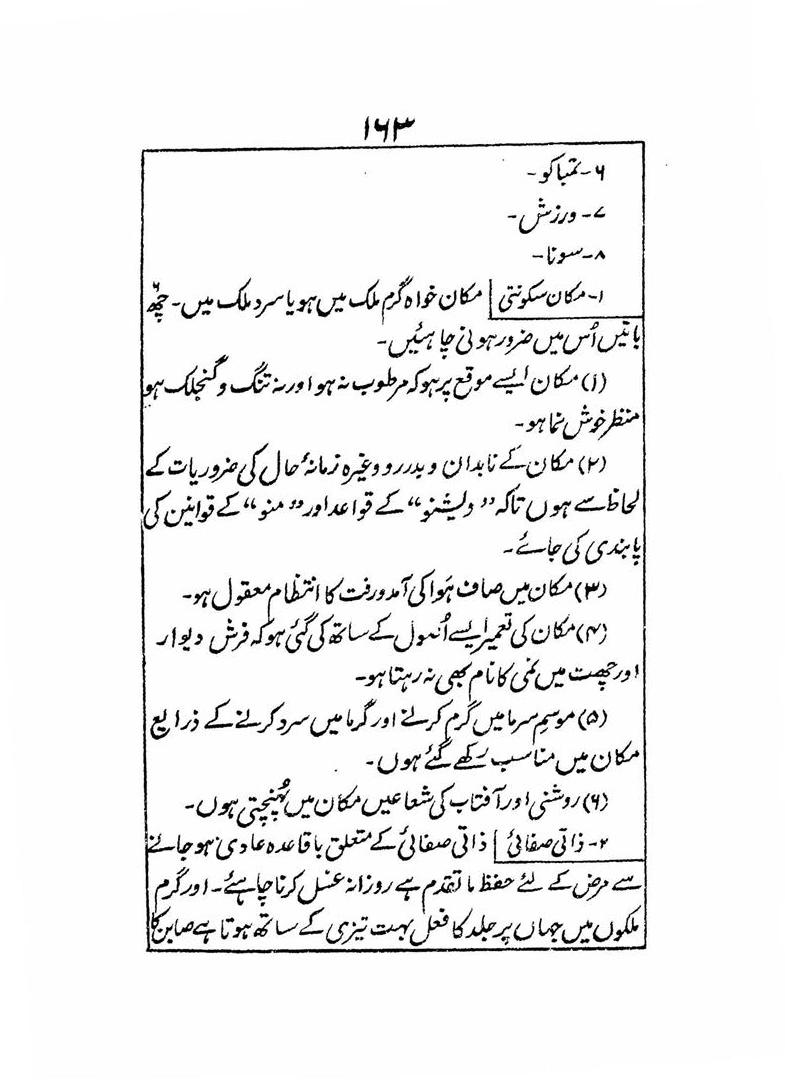 ۱۶۳
۶- تمباکو-
۷- ورزش-
۸- سونا-
۱- مکان سکونتی | مکان خواہ گرم ملک میں ہو یا سرد ملک میں- چھ
باتیں اُس میں ضرور ہونی چاہئیں-
(۱) مکان ایسے موقع پر ہو کہ مرطوب نہ ہو اور نہ تنگ و گنجلک ہو
منظر خوش نما ہو-
(۲) مکان کے نابدان و بدررو وغیرہ زمانۂ حال کی ضروریات کے
لحاظ سے ہوں تاکہ ”ولیشنو“ کے قواعد اور ”منو“ کے قوانین کی
پابندی کی جائے-
(۳) مکان میں صاف ہَوا کی آمد و رفت کا انتظام معقول ہو-
(۴) مکان کی تعمیر ایسے اُصول کے ساتھ کی گئی ہو کہ فرش دیوار
اور چھت میں نمی کا نام بھی نہ رہتا ہو-
(۵) موسمِ سرما میں گرم کرنے اور گرما میں سرد کرنے کے ذرایع
مکان میں مناسب رکھے گئے ہوں-
(۶) روشنی اور آفتاب کی شعاعیں مکان میں پُہنچتی ہوں-
۲- ذاتی صفائی | ذاتی صفائی کے متعلق باقاعدہ عادی ہو جانے
سے مرض کے لئے حفظ ما تقدم ہے روزانہ غسل کرنا چاہئے- اور گرم
ملکوں میں جہاں پر جلد کا فعل بہت تیزی کے ساتھ ہوتا ہے صابن کا